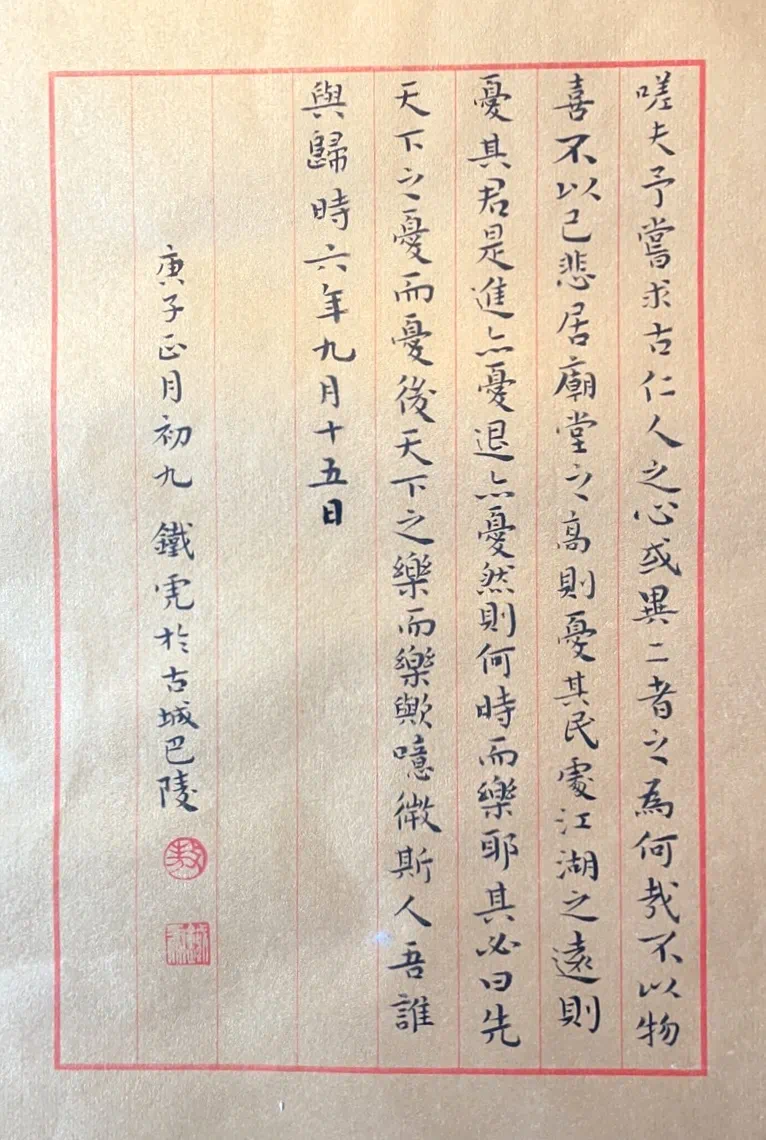 嗟夫予嘗求古仁人之心或異二者之為何哉不以物
喜不以己悲居廟堂之高則憂其民處江湖之遠則
憂其君是進亦憂退亦憂然則何時而樂耶其必曰先
天下之憂而憂後天下之樂而樂歟噫微斯人吾誰
與歸時六年九月十五日
庚子正月初九 鐵虎於古城巴陵